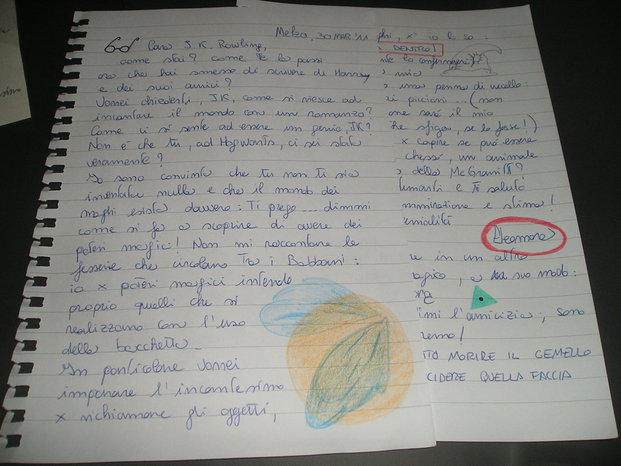 Melzo, 30 MAR '11
Caro J.K. Rowling,
come stai? Come te la passi
ora che hai smesso di scrivere di Harry
e dei suoi amici?
Vorrei chiederti, JK, come si riesce ad
incantare il mondo con un romanzo?
Come ci si sente ad essere un genio, JK?
Non è che tu, ad Hogwarts, ci sei stata
veramente?
Io sono convinta che tu non ti sia
inventata nulla e che il mondo dei
maghi esista davvero: Ti prego... dimmi
come si fa a scoprire di avere dei
poteri magici! Non mi raccontare le
fesserie che circolano tra i Babbani:
io x poteri magici intendo
proprio quelli che si
realizzano con l'uso
della bacchetta.
In particolare vorrei
imparare l'incantesimo
x richiamare gli oggetti,
phi, x' io lo so:
DENTRO!
te lo confermerei
mio
una penna di uccello:
i piccioni ... (non
ome sarà il mio
he sfiga, se lo fosse!)
x capire se può essere
chessò, un animale
della McGranitt?
umanti e ti saluto
mmirazione e stima!
enialità
Eleonora
e in un altro
agico, a suo modo:
imi l'amicizia:, sono
remo!
TO MORIRE IL GEMELLO
CIDERE QUELLA FACCIA